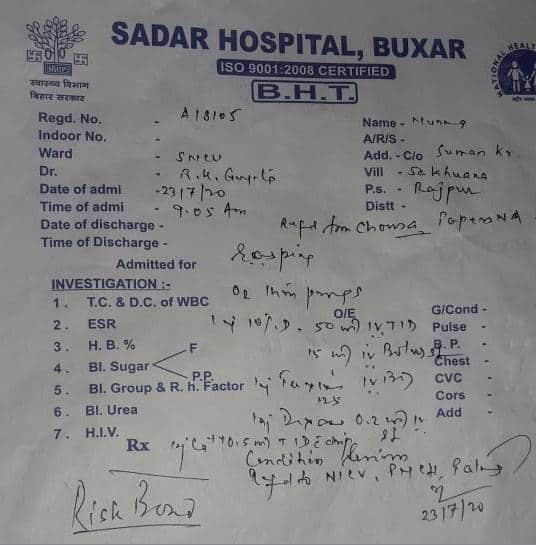 SADAR HOSPITAL, BUXAR
ISO 9001:2008 CERTIFIED
B.H.T.
स्वास्थ्य विभाग
बिहार सरकार
NATIONAL HEALTH
Regd. No. - A18105
Name - Munna
Indoor No. -
A/R/S -
Ward - SNCU
Add. - C/o Suman Kr.
Dr. - R.K. Gupta
Vill - Sakhuana
Date of admi - 23/7/20
P.s. - Rajpur
Time of admi - 9.05 Am
Distt -
Date of discharge - Refd from Chousa Papers NA
Time of Discharge -
Admitted for Gasping
INVESTIGATION :-
O2
1. T.C. & D.C. of WBC
O/E
G/Cond -
2. ESR Inj 10% D. 50 ml IV TID
Pulse -
3. H. B. % F
15 ml iv Bolus st
B. P. -
4. Bl. Sugar
Chest -
P.P.
5. Bl. Group & R. h. Factor Inj IV BD
CVC -
125
Cors -
6. Bl. Urea Inj 0.2 ml iv
Add -
7. H.I.V.
Rx Inj 0.5 ml
Condition
Refd to NICU, PMCH, Patna
Risk Bond
23/7/20